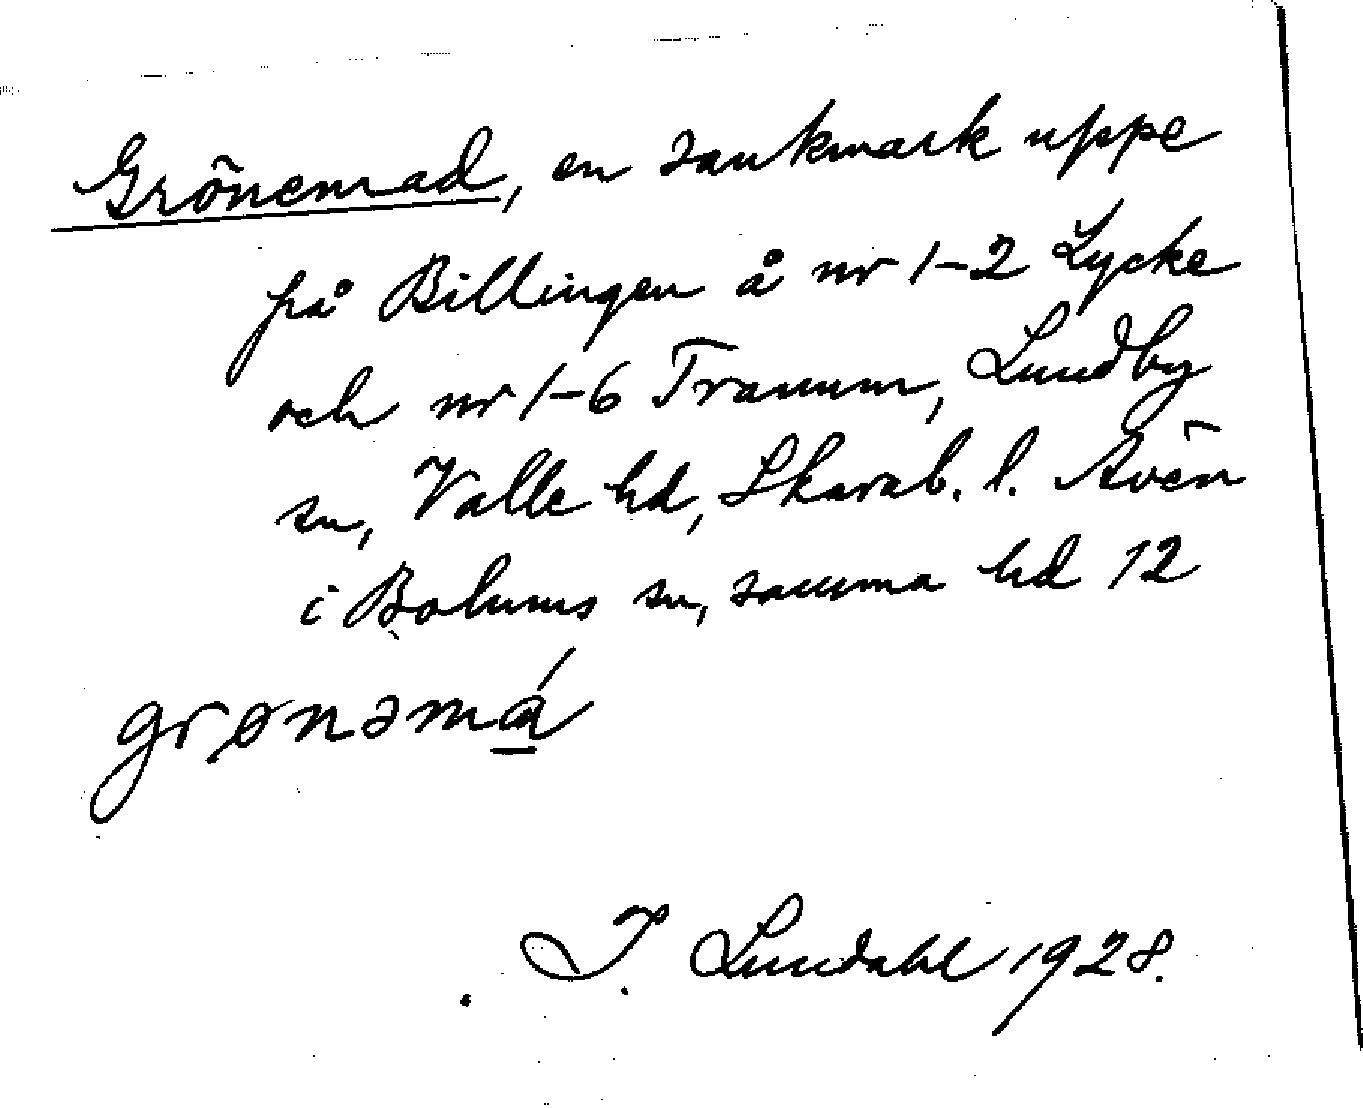 Grönemad, en sankmark uppe
på Billingen å nr 1-2 Lycke
och nr 1-6 Tranum, Lundby
sn, Valle hd, Skarab. l. Även
i Bolums sn, samma hd 12
grønəmá
I. Lundahl 1928.